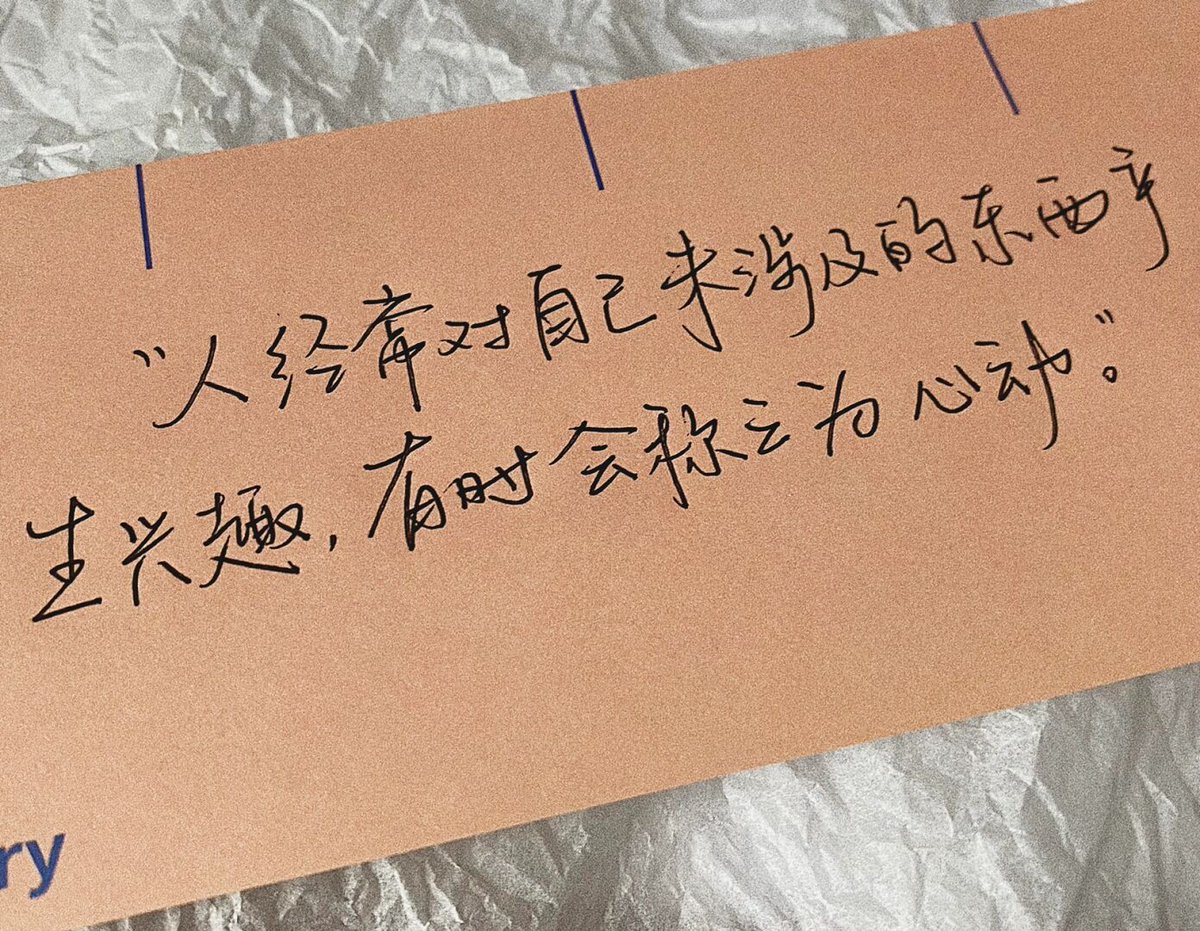 “人经常对自己未涉及的东西产
生兴趣，有时会称之为心动”。
ry